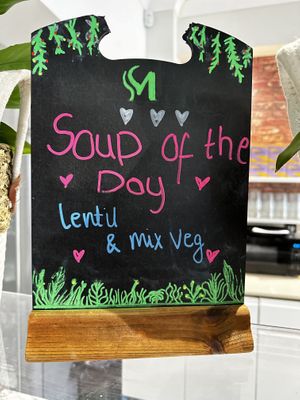 SM
Soup of the
Day
Lentil
& mix veg